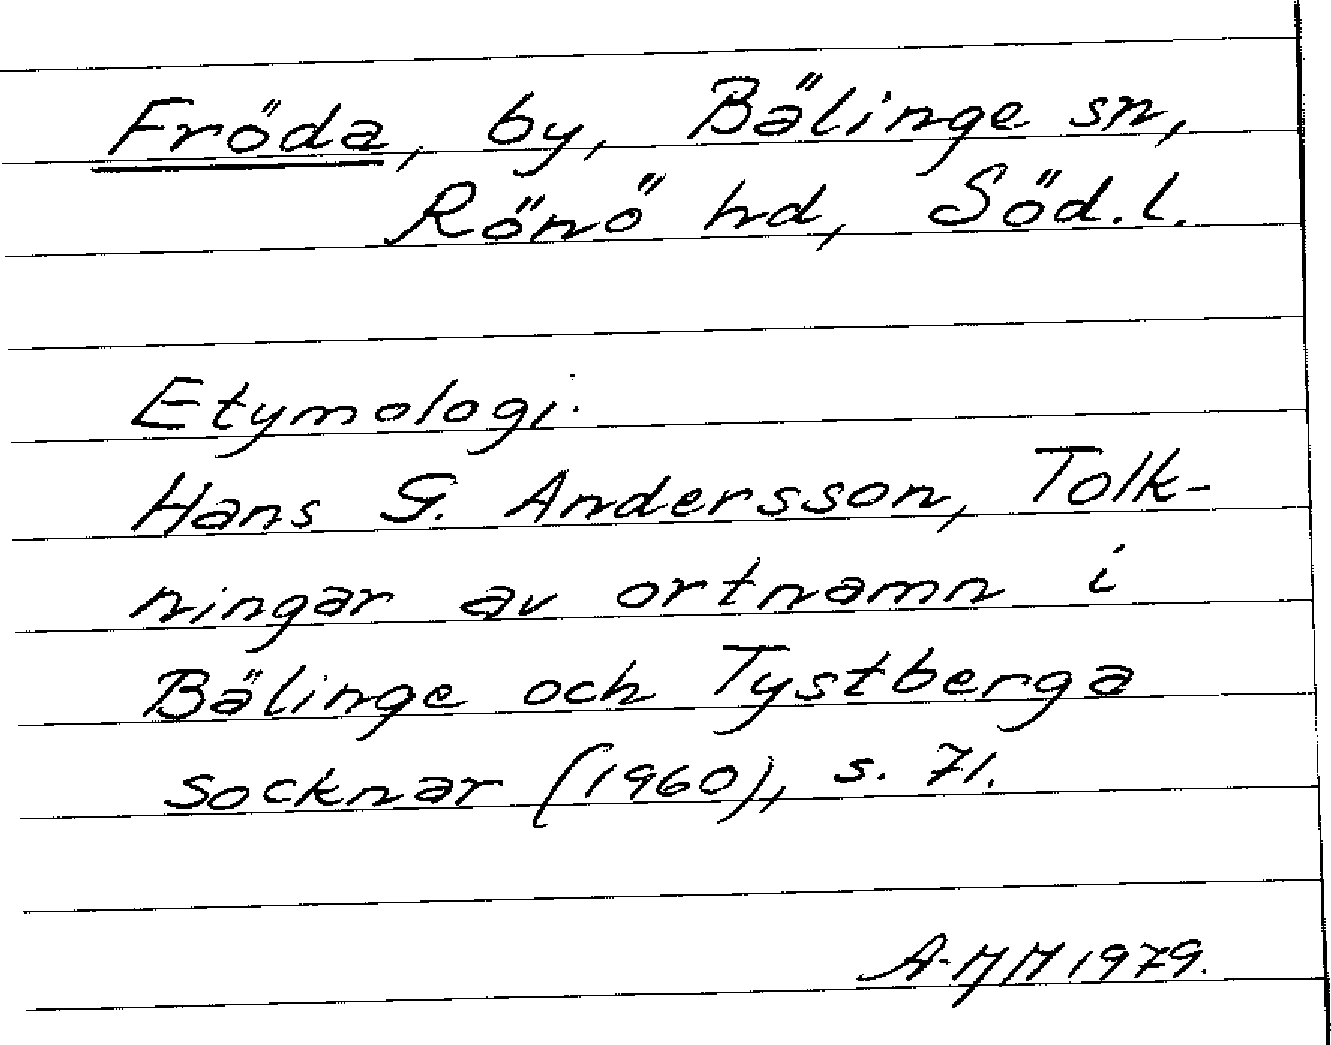 Fröda, by, Bälinge sn,
Rönö hd, Söd.l.
Etymologi:
Hans G. Andersson, Tolk-
ningar av ortnamn i
Bälinge och Tystberga
socknar (1960), s. 71.
1979.